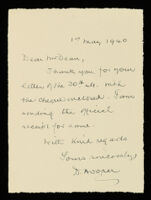 1st May 1940
Dear Mr Dean,
Thank you for your
letter of the 30th ult. with
the cheque enclosed. I am
sending the official
receipt for same.
With kind regards
Yours sincerely,
D. Hooper